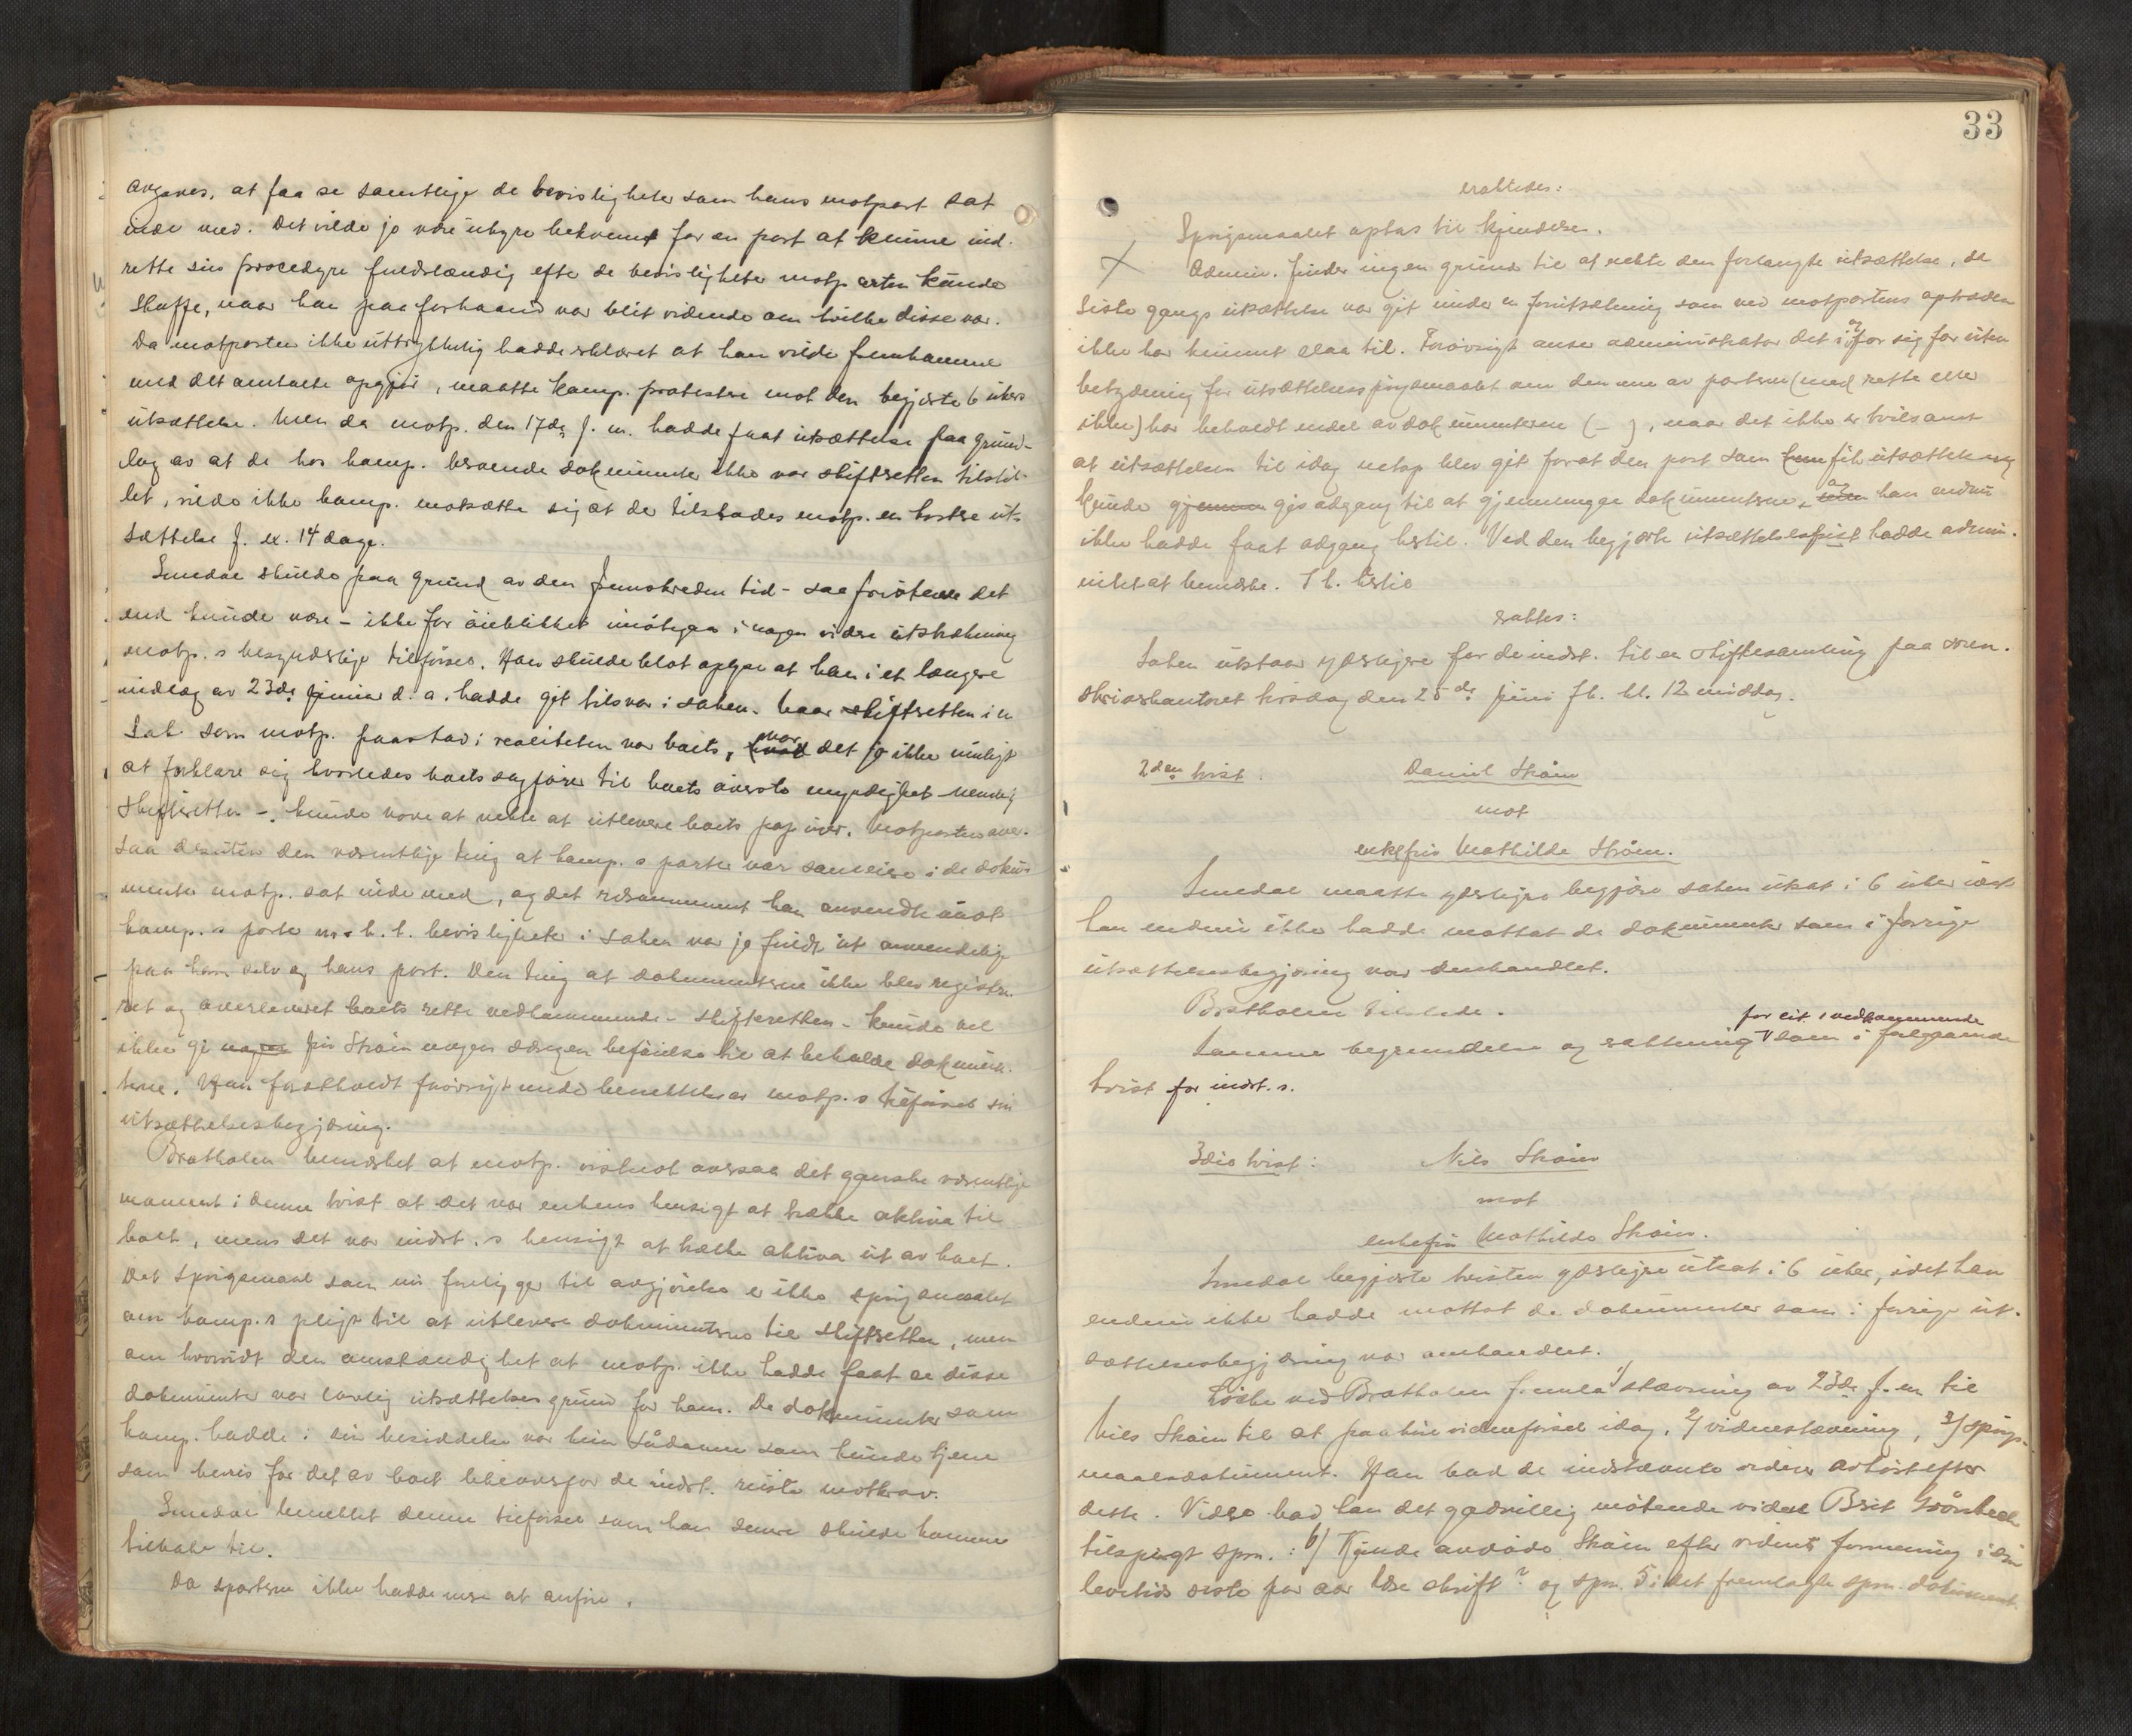 avgaves, at faa se samtlige de bevisligheter som hans motpart sat
inde med. Det vilde jo være uhyre bekvemt for en part at kunne ind-
rette sin procedyre fuldstændig efter de bevisligheter motparten kunde
skaffe, naar han paa forhaand var blit vidende om hvilke disse var.
Da motparten ikke uttrykkelig hadde erklæret at han vilde fremkomme
med det omtalte opgjør, maatte komp. protestere mot den begjærte 6 ukers
utsættelse. Men da motp. den 17de f. m. hadde faat utsættelse paa grund-
lag av at de hos komp. beroende dokumenter ikke var skifteretten tilstil-
let, vilde ikke komp. motsætte sig at der tilstodes motp. en kortere ut-
sættelse f. ex. 14 dage.
Smedal skulde paa grund av den fremskreden tid - saa fristende det
end kunde være - ikke for øieblikket imøtegaa i nogen videre utstrækning
motp.s besynderlige tilførsel. Han skulde blot oplyse at han i et længere
indlæg av 23de januar d. a. hadde git tilsvar i saken. Naar skifteretten i en
sak som motp. paastod i realiteten var boets, var det jo ikke muligt
at forklare sig hvorledes boets sagfører til boets øverste myndighet - nemlig
skifteretten -, kunde vove at nekte at utlevere boets papirer. Motparten over-
saa desuten den væsentlige ting at komp.s parter var sameiere i de doku-
menter motp. sat inde med, og det ræsonnement han anvendte mot
komp.s parter m. h. t. bevisligheter i saken var jo fuldt ut anvendelig
paa ham selv og hans part. Den ting at dokumenterne ikke blev registre-
ret og overleveret boets rette vedkommende - skifteretten - kunde vel
ikke gi fru Strøm nogen særegen beføielse til at beholde dokumen-
terne. Han fastholdt forøvrigt under benektelse av motp.s tilførsel sin
utsættelsesbegjæring.
Bratholm bemerket at motp. vistnok oversaa det ganske væsentlige
moment i denne tvist at det var enkens hensigt at trække aktiva til
boet, mens det var indst.s hensigt at trække aktiva ut av boet.
Det spørgsmaal som nu foreligger til avgjørelse er ikke spørgsmaalet
om komp.s pligt til at utlevere dokumenterne til skifteretten, men
om hvorvidt den omstændighet at motp. ikke hadde faat se disse
dokumenter var lovlig utsættelsesgrund for ham. De dokumenter som
komp. hadde i sin besiddelse var kun sådanne som kunde tjene
som bevis for det av boet likeoverfor de indst. reiste motkrav.
Smedal benektet denne tilførsel som han senere skulde komme
tilbake til.
Da parterne ikke hadde mere at anføre,
33
eraktedes:
Spørgsmaalet optas til kjendelse.
Admin. finder ingen grund til at nekte den forlangte utsættelse, da
siste gangs utsættelse var git under en forutsætning som ved motpartens optræden
ikke har kunnet slaa til. Forøvrigt anser administrator det i og for sig for uten
betydning for utsættelsesspørgsmaalet om den ene av parterne (med rette eller
ikke) har beholdt endel av dokumenterne (–), naar det ikke er tvilsomt
at utsættelsen til idag netop blev git forat den part som fik utsættelse
kunde gis adgang til at gjennemgaa dokumenterne, og han endnu
ikke hadde faat adgang hertil. Ved den begjærte utsættelsesfrist hadde admin.
intet at bemerke. I h. hertil
eraktes:
Saken utstaar yderligere for de indst. til en skiftesamling paa soren-
skriverkontoret tirsdag den 25de juni fk. kl. 12 middag.
2den tvist. Daniel Strøm
mot
enkefru Mathilde Strøm.
Smedal maatte yderligere begjære saken utsat i 6 uker idet
han endnu ikke hadde mottat de dokumenter som i forrige
utsættelsesbegjæring var omhandlet.
Bratholm tilstede.
for cit.s vedkommende
Samme begrundelse og eraktning som i foregaaende
tvist for indst.s.
3die tvist: Nils Strøm
mot
enkefru Mathilde Strøm.
Smedal begjærte tvisten yderligere utsat i 6 uker, idet han
endnu ikke hadde mottat de dokumenter som i forrige ut-
sættelsesbegjæring var omhandlet.
Løchen ved Bratholm fremla 1/ stævning av 23de f. m. til
Nils Strøm til at paahøre vidneførsel idag, 2/ vidnestævning, 3/ spørs-
maalsdokument. Han bad de indstævnte vidner avhørt efter
dette. Videre bad han det godvillig møtende vidne Brit
tilspurgt spm.: 6/ Kunde avdøde Strøm efter vidnets formening i sin
levetids siste par aar læse skrift? og spm. 5 i det fremlagte spm. dokument.